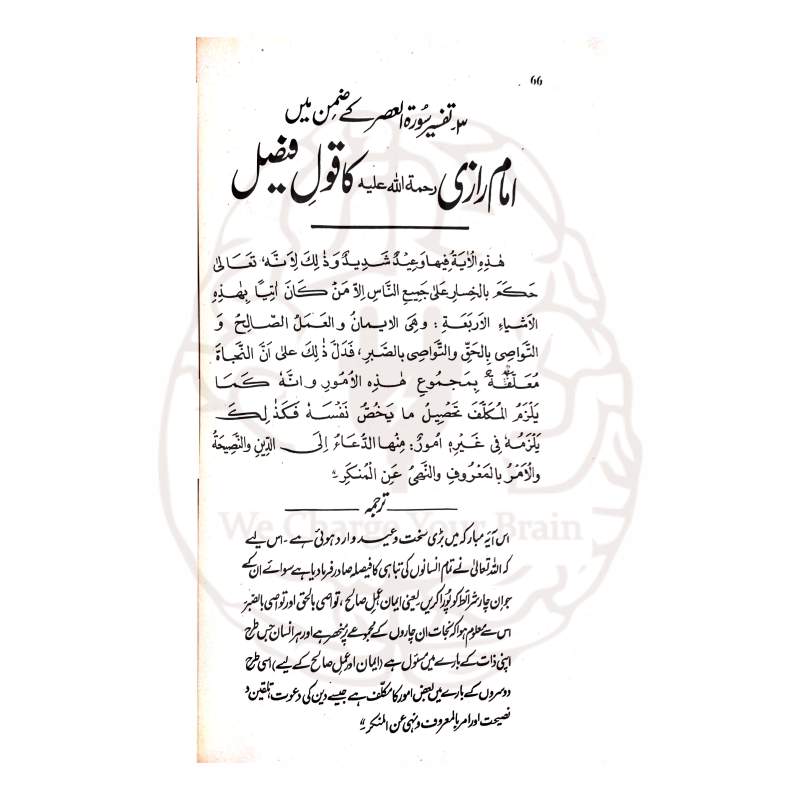 66
۳۔ تفسیر سُورۃ العصر کے ضمن میں
امام رازی رحمۃ اللہ علیہ کا قولِ فیصل
هٰذِهِ الْاٰيَةُ فِيها وَعِيْدٌ شَدِيدٌ وَذٰلِكَ لِاَنَّهٗ، تَعَالىٰ
حَكَمَ بِالخِسارِ عَلىٰ جَمِيعِ النَّاسِ اِلاَّ مَنْ كَانَ اٰتِياً بِهٰذِهِ
الاَشْياءِ الاَرْبَعَةِ : وَهِىَ الايمَانُ وَالعَمَلُ الصَّالِحُ وَ
التَّوَاصِى بِالحَقِّ والتَّوَاصِى بالصَّبرِ، فَدَلَّ ذٰلِكَ عَلىٰ اَنَّ النَّجَاةَ
مُعَلَّقَةٌ بِمَجمُوعِ هٰذِهِ الاُمُورِ وَانَّهٗ كَمَا
يَلْزَمُ المُكَلَّفَ تَحْصِيلُ ما يَخُصُّ نَفْسَهٗ فَكَذٰلِكَ
يَلزَمُهٗ فِى غَيْرِهٖ اُمُورٌ: مِنْهَا الدُّعَاءُ اِلىَ الدِّينِ والنَّصِيحَةُ
وَالاَمْرُ بِالمَعْرُوفِ وَالنَّهىُ عَنِ الْمُنكَرِ
ترجمہ
We Charge Your Brain
اس آیۂ مبارکہ میں بڑی سخت وعید وارد ہوئی ہے۔ اس لیے
کہ اللہ تعالیٰ نے تمام انسانوں کی تباہی کا فیصلہ صادر فرما دیا ہے سوائے ان کے
جو ان چار شرائط کو پُورا کریں یعنی ایمان، عملِ صالح، تواصی بالحق اور تواصی بالصبر
اس سے معلوم ہوا کہ نجات ان چاروں کے مجموعے پر منحصر ہے اور ہر انسان جس طرح
اپنی ذات کے بارے میں مسئول ہے (ایمان اور عملِ صالح کے لیے) اسی طرح
دوسروں کے بارے میں بعض امور کا مکلّف ہے جیسے دین کی دعوت، تلقین و
نصیحت اور امر بالمعروف و نہی عن المنکر